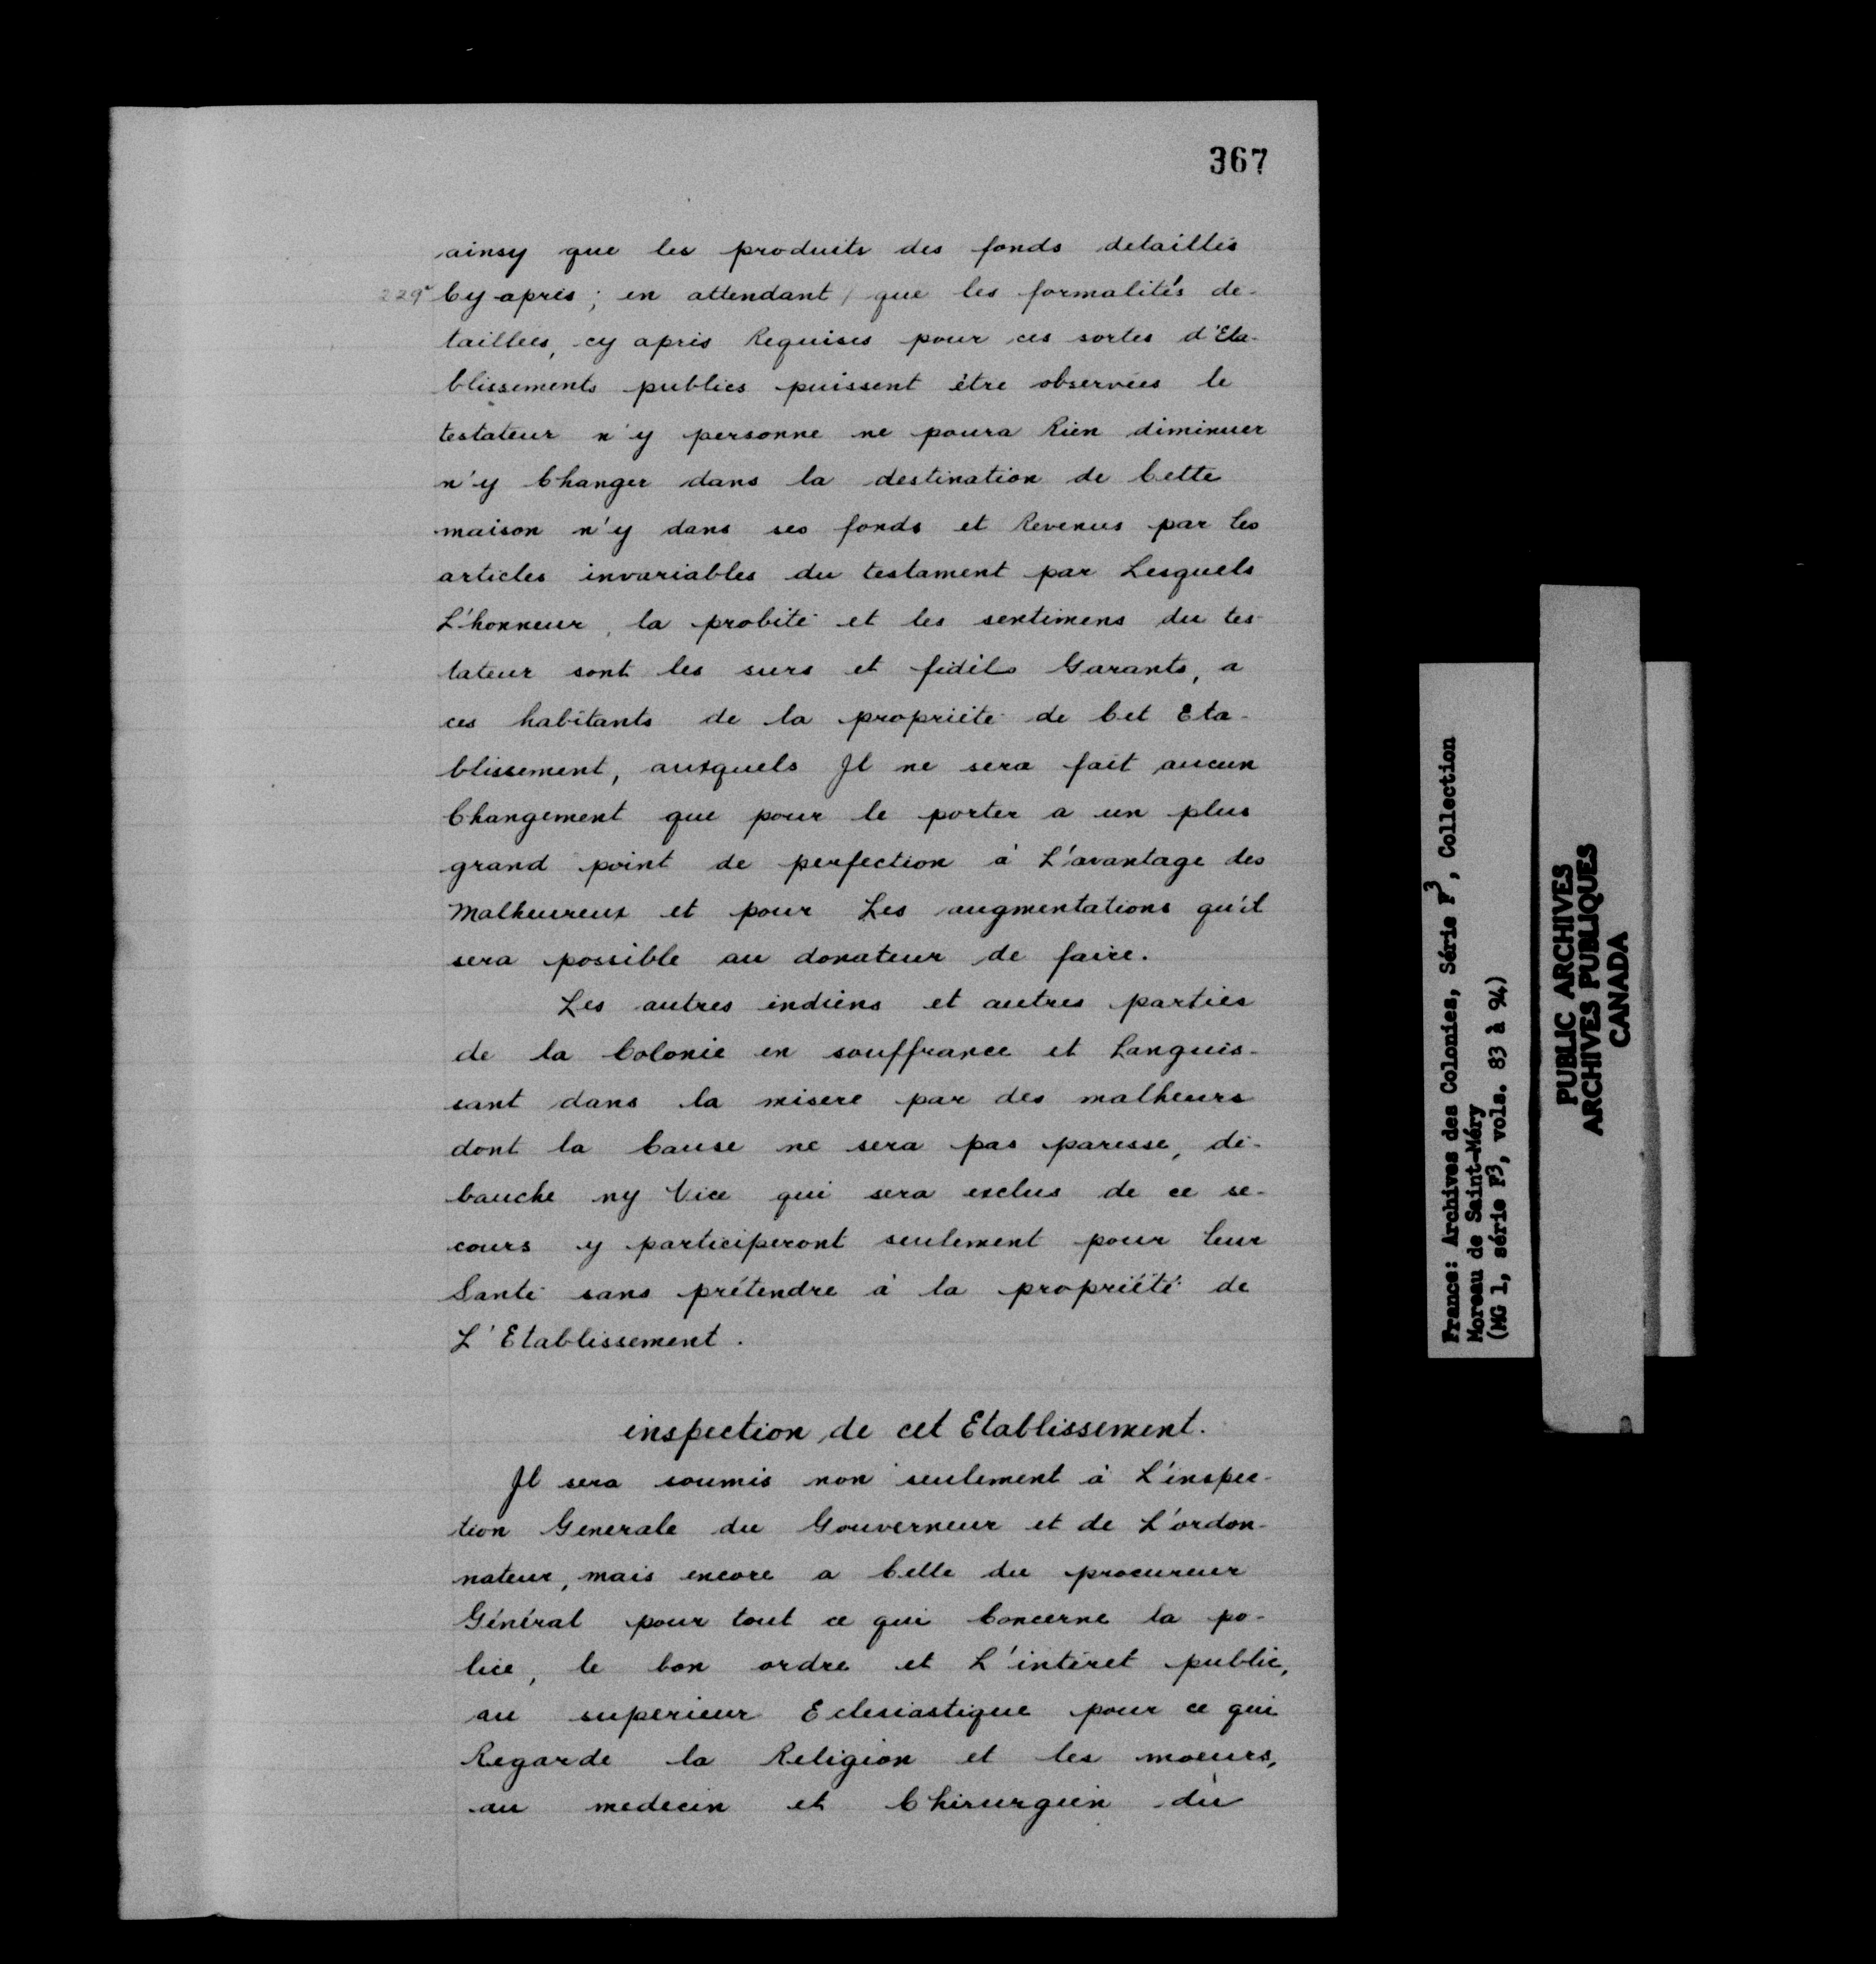 367
ainsy que les produits des fonds detaillés
229v Cy-après; en attendant / que les formalités de-
taillées, cy après Requises pour ces sortes d'Eta-
blissements publics puissent être observées le
testateur n'y personne ne poura Rien diminuer
n'y Changer dans la destination de Cette
maison n'y dans ses fonds et Revenus par les
articles invariables du testament par Lesquels
L'honneur, la probité et les sentimens du tes-
tateur sont les surs et fidèls Garants, a
ces habitants de la propriété de Cet Eta-
blissement, auxquels Il ne sera fait aucun
Changement que pour le porter a un plus
grand point de perfection à L'avantage des
Malheureux et pour Les augmentations qu'il
sera possible au donateur de faire.
Les autres indiens et autres parties
de la Colonie en souffrance et Languis-
sant dans la misere par des malheurs
dont la Cause ne sera pas paresse, dé-
bauche ny Vice qui sera exclus de ce se-
cours y participeront seulement pour leur
Santé sans prétendre à la propriété de
L'Etablissement.
inspection de cet Etablissement.
Il sera soumis non seulement à L'inspec-
tion Generale du Gouverneur et de L'ordon-
nateur, mais encore a Celle du procureur
Général pour tout ce qui Concerne la po-
lice, le bon ordre et L'intéret public,
au superieur Eclesiastique pour ce qui
Regarde la Religion et les moeurs,
au medecin et Chirurgien du
France: Archives des Colonies, Série F3, Collection
Moreau de Saint-Méry
(MG 1, série F3, vols. 83 à 94)
PUBLIC ARCHIVES
ARCHIVES PUBLIQUES
CANADA